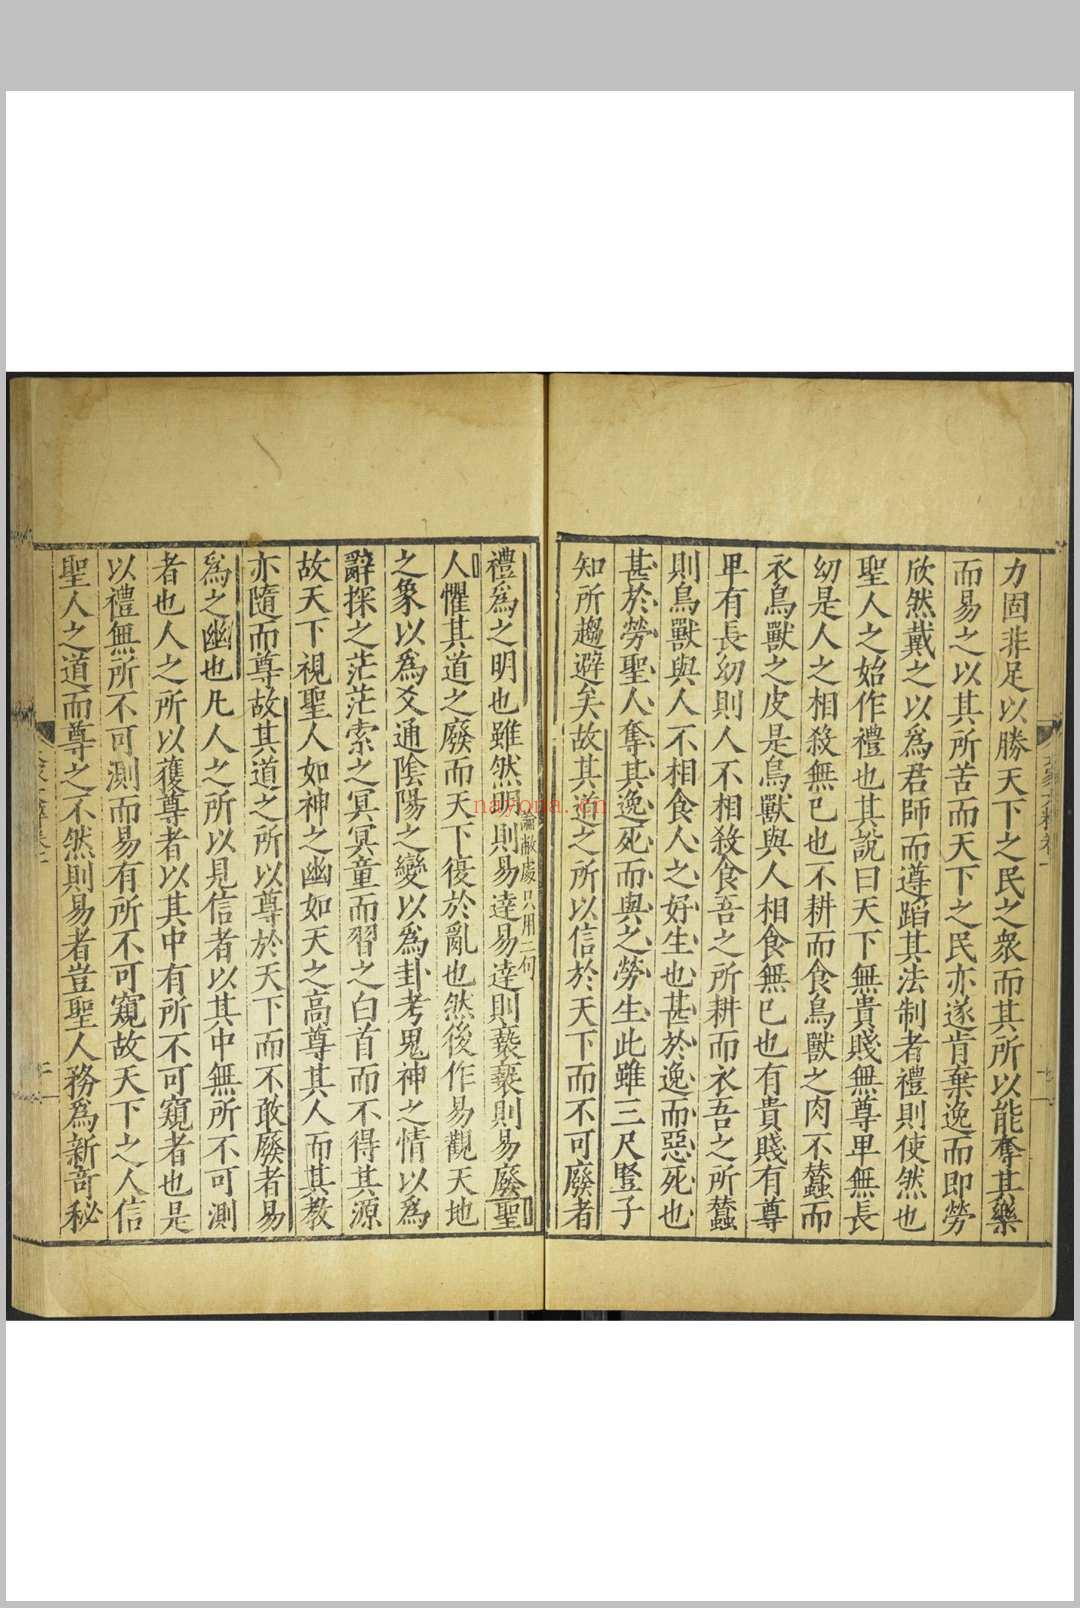 力固非足以勝天下之民之衆而其所以能奪其樂
而易之以其所苦而天下之民亦遂肯棄逸而即勞
欣然戴之以為君師而遵蹈其法制者禮則使然也
聖人之始作禮也其說曰天下無貴賤無尊卑無長
幼是人之相殺無已也不耕而食鳥獸之肉不蠶而
衣鳥獸之皮是鳥獸與人相食無已也有貴賤有尊
卑有長幼則人不相殺食吾之所耕而衣吾之所蠶
則鳥獸與人不相食人之好生也甚於逸而惡死也
甚於勞聖人奪其逸死而與之勞生此雖三尺豎子
知所趨避矣故其道之所以信於天下而不可廢者
論敝處只用二句
禮爲之明也雖然明則易達易達則褻褻則易廢聖
人懼其道之廢而天下復於亂也然後作易觀天地
之象以爲爻通陰陽之變以爲卦考鬼神之情以爲
辭探之茫茫索之冥冥童而習之白首而不得其源
故天下視聖人如神之幽如天之高尊其人而其教
亦隨而尊故其道之所以尊於天下而不敢廢者易
爲之幽也凡人之所以見信者以其中無所不可測
者也人之所以獲尊者以其中有所不可窺者也是
以禮無所不可測而易有所不可窺故天下之人信
聖人之道而尊之不然則易者豈聖人務爲新奇秘
navona.cn